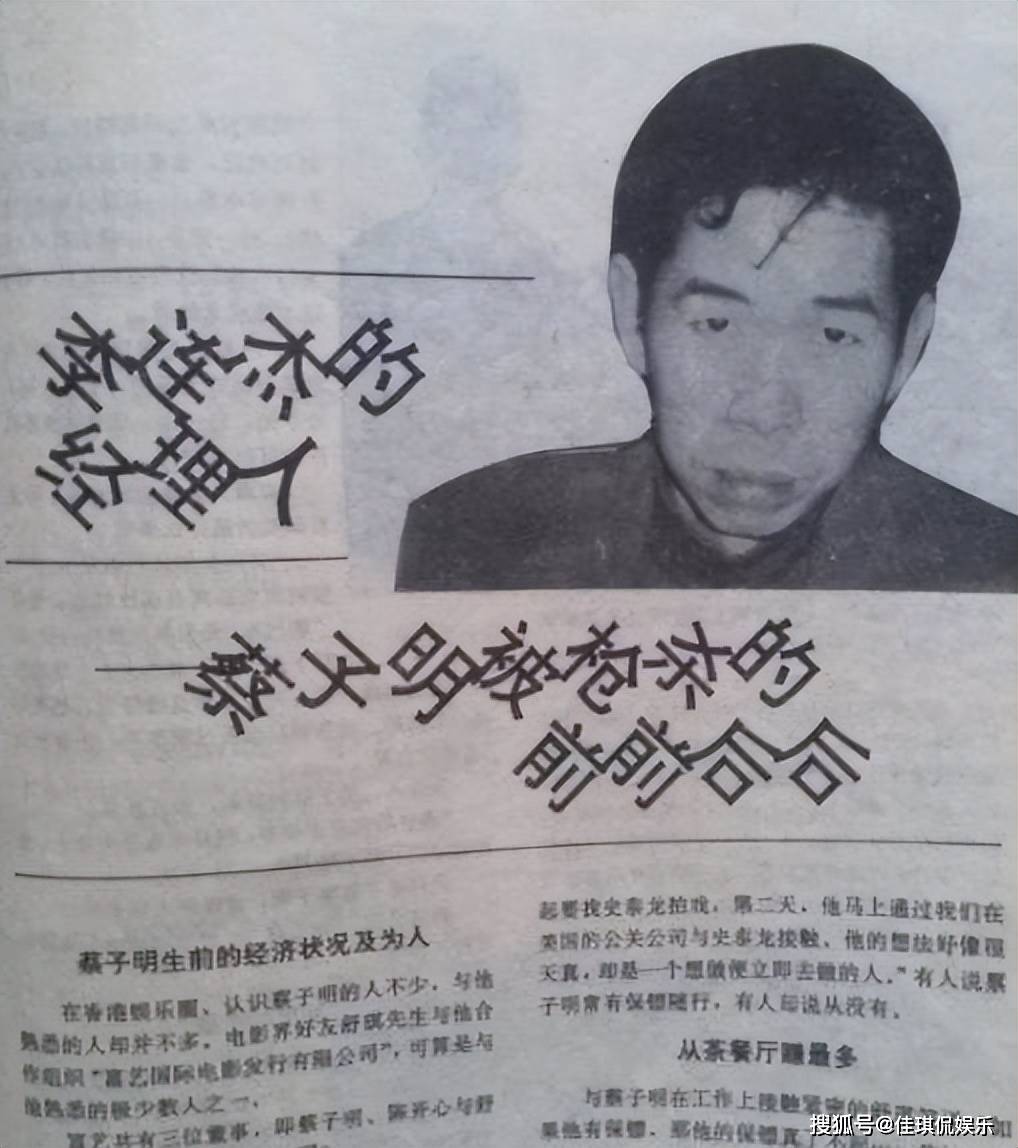 李连杰的
经理人
——蔡子明被枪杀的
前前后后
蔡子明生前的经济状况及为人
在香港娱乐圈、认识蔡子明的人不少，与他
熟悉的人却并不多。电影界好友舒琪先生与他合
作组织“富艺国际电影发行有限公司”，可算是与
他熟悉的极少数人之一。
富艺共有三位董事，即蔡子明、陈开心与舒
起要找史泰龙拍戏，第二天，他马上通过我们在
美国的公关公司与史泰龙接触。他的想法好像很
天真，却是一个想做便立即去做的人。”有人说蔡
子明常有保镖随行，有人却说从没有。
从茶餐厅赚最多
与蔡子明在工作上接触
果他有保镖，那他的保镖真
搜狐号@佳琪侃娱乐